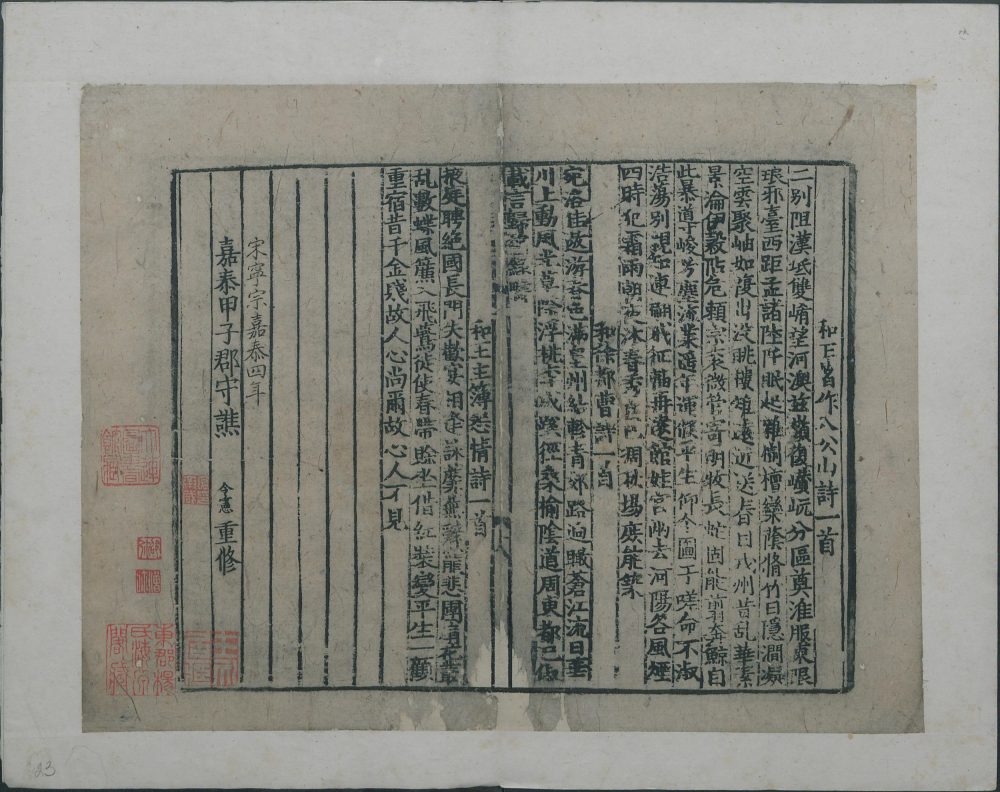 和王著作八公山詩一首
二別阻漢坻雙崤望河澳茲嶺復巑岏分區奠淮服東限
琅邪臺西距孟諸陸阡眠起雜樹檀欒蔭脩竹日隱澗凝
空雲聚岫如復出沒眺樓雉遠近送春目戎州昔亂華素
景淪伊穀阽危賴宗衮微管寄明牧長虵固能翦奔鯨自
此暴道峻芳塵流業遥年運倏平生仰令圖于嗟命不淑
浩蕩別親知連翩戒征軸再遠館娃宮兩去河陽谷風煙
四時犯霜雨朝夜沐春秀良已凋秋場庶能築
和徐都曹詩一首
宛洛佳遨游春色滿皇州結軫青郊路迥瞰蒼江流日華
川上動風光草際浮桃李成蹊徑桑榆陰道周東都已俶
載言歸望綠疇
和王主簿怨情詩一首
掖庭聘絕國長門失歡宴相逢詠蘼蕪辭寵悲團扇花叢
亂數蝶風簾入飛鷰徒使春帶賒坐惜紅裝變平生一顧
重宿昔千金賤故人心尚爾故心人不見
宋寧宗嘉泰四年
嘉泰甲子郡守譙 令憲 重修
23